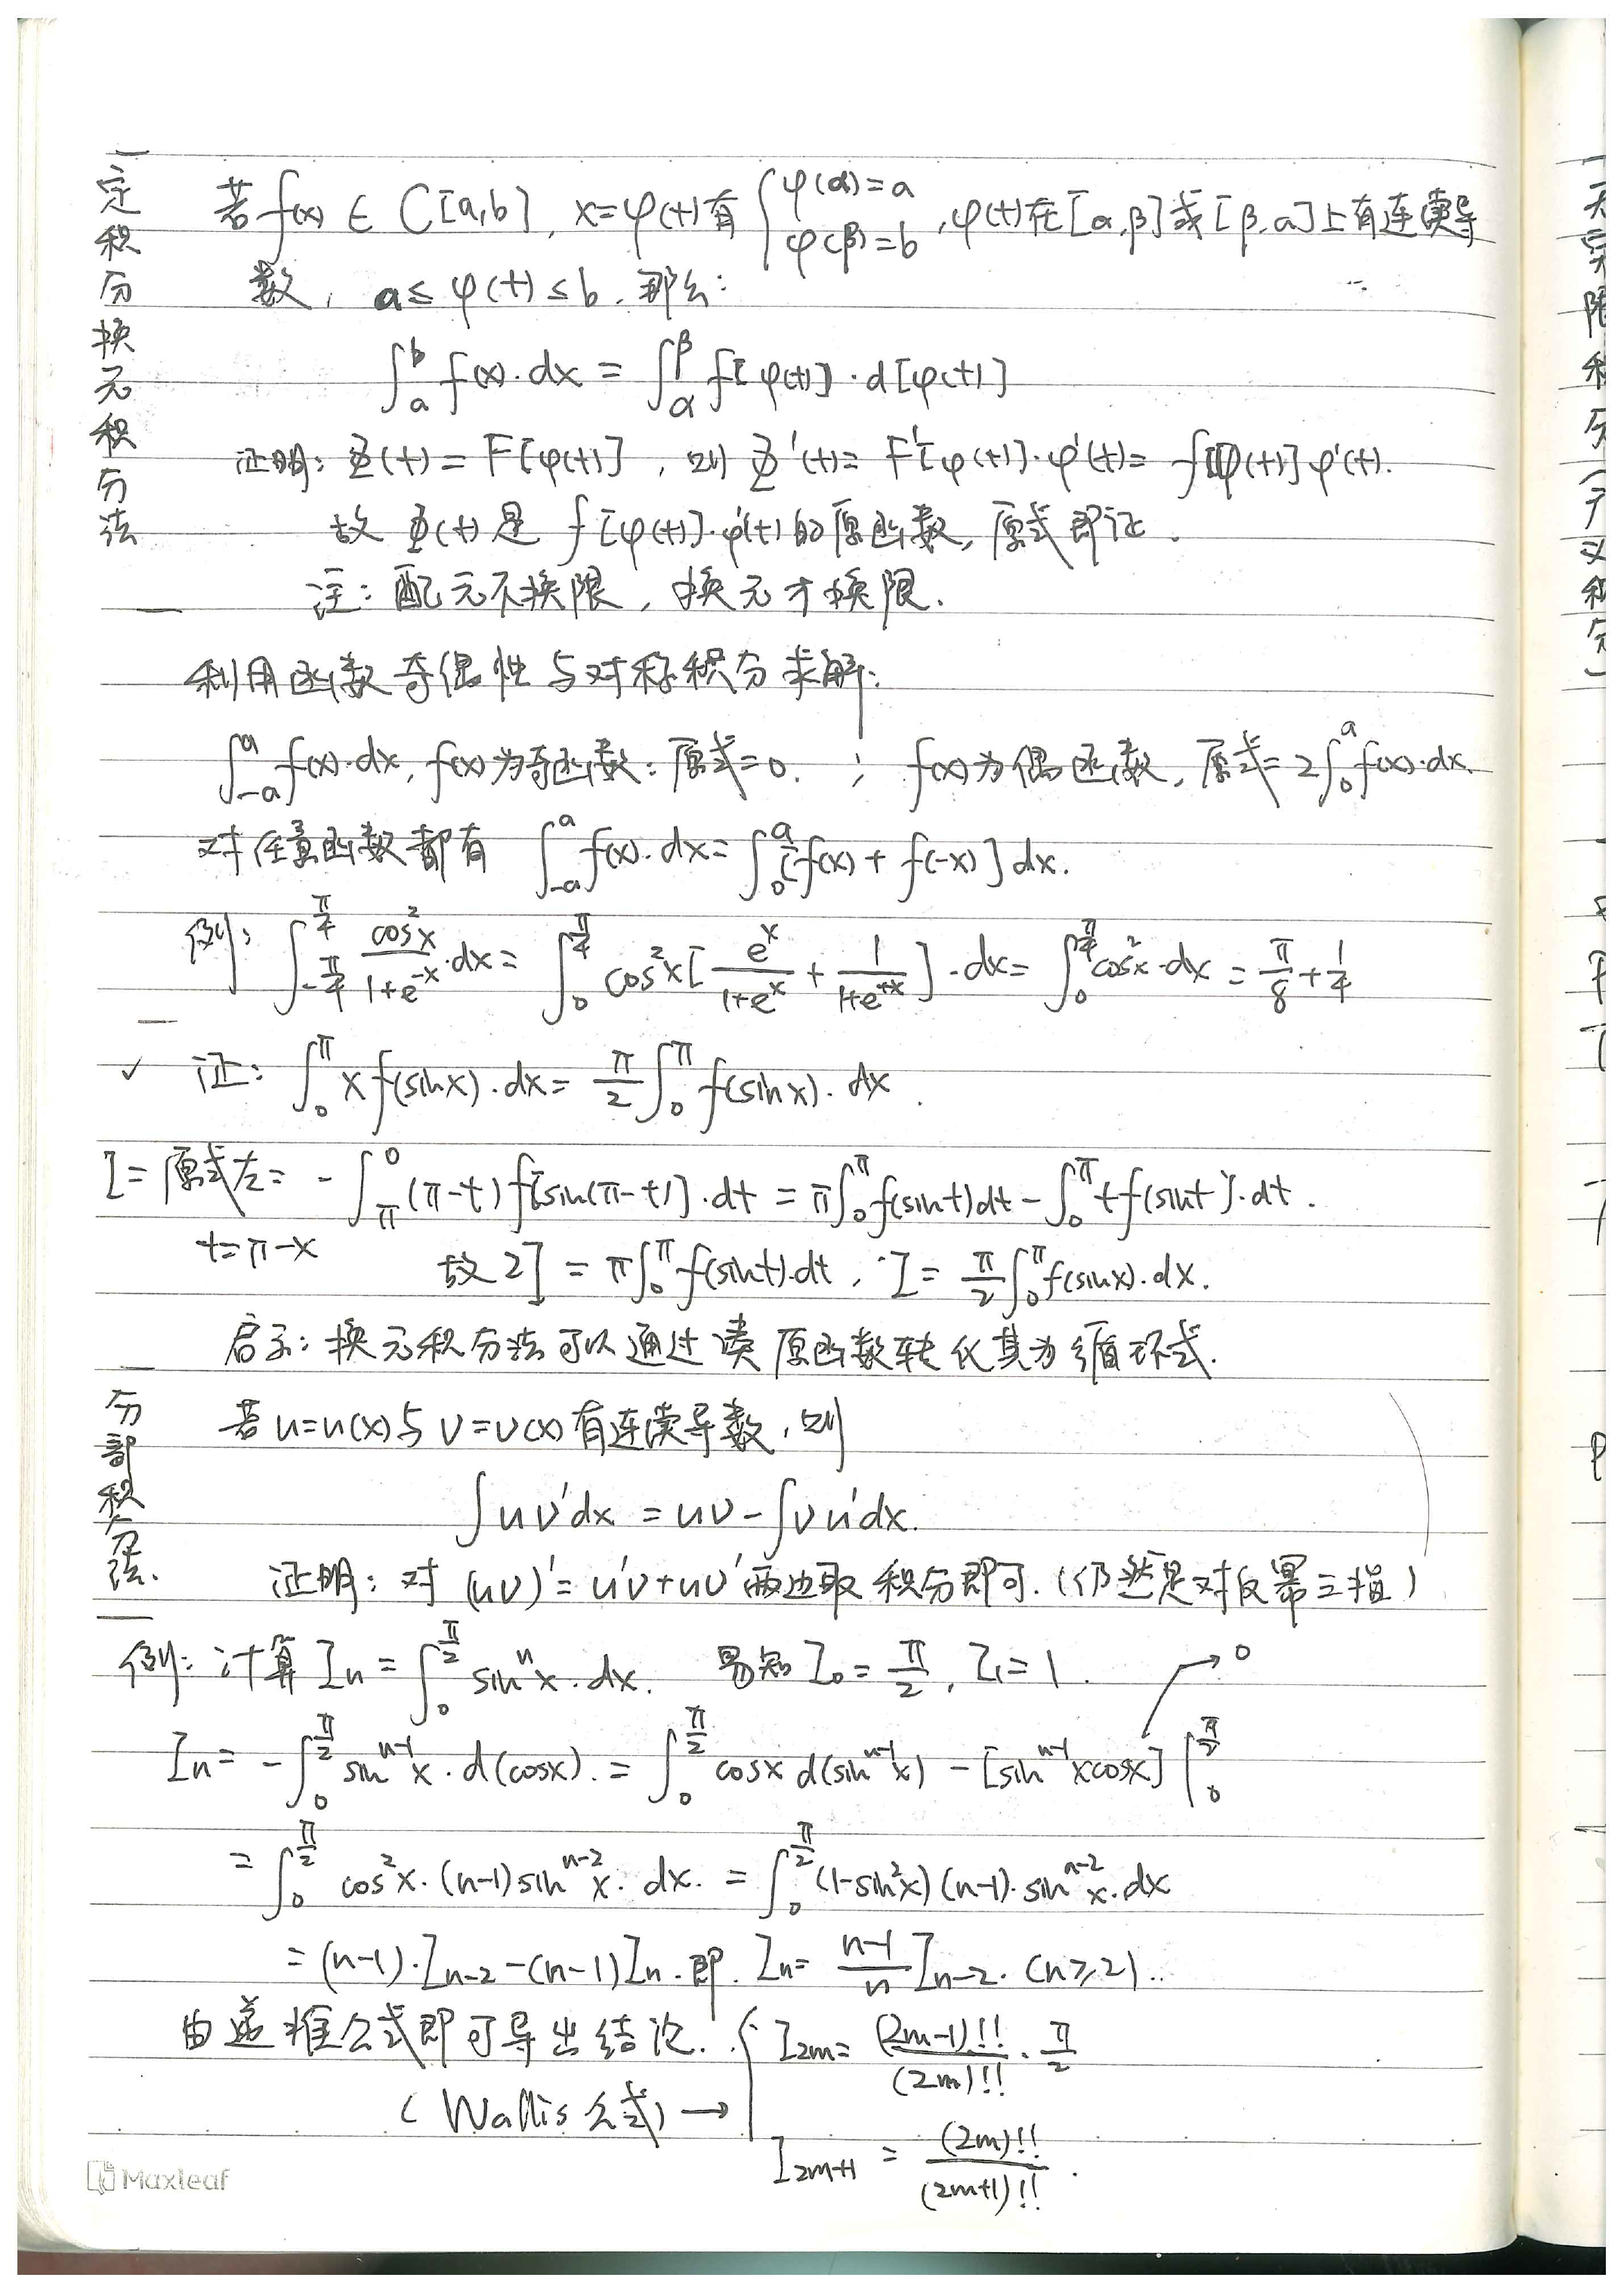 定积分换元积分法
若 f(x) ∈ C[a,b], x=φ(t)有 {φ(α)=a, φ(β)=b, φ(t)在[α,β]或[β,α]上有连续导
数, a≤φ(t)≤b, 那么:
∫_a^b f(x)·dx = ∫_α^β f[φ(t)]·d[φ(t)]
证明: Φ(t) = F[φ(t)], 则 Φ'(t)= F'[φ(t)]·φ'(t)= f[φ(t)]φ'(t).
故 Φ(t) 是 f[φ(t)]·φ'(t) 的原函数, 原式即证.
注: 配元不换限, 换元才换限.
利用函数奇偶性与对称积分求解:
∫_{-a}^a f(x)·dx, f(x)为奇函数: 原式=0. ; f(x)为偶函数, 原式= 2∫_0^a f(x)·dx.
对任意函数都有 ∫_{-a}^a f(x)·dx= ∫_0^a [f(x) + f(-x)] dx.
例: ∫_{-π/4}^{π/4} cos²x/(1+e^{-x})·dx = ∫_0^{π/4} cos²x[e^x/(1+e^x) + 1/(1+e^{+x})]·dx= ∫_0^{π/4} cos²x·dx = π/8 + 1/4
✓ 证: ∫_0^π x f(sinx)·dx= π/2 ∫_0^π f(sinx)·dx.
I= 原式左= -∫_π^0 (π-t) f[sin(π-t)]·dt = π∫_0^π f(sint)dt - ∫_0^π t f(sint)·dt.
t=π-x
故 2I = π∫_0^π f(sint)·dt, I = π/2 ∫_0^π f(sinx)·dx.
启示: 换元积分法可以通过凑原函数转化其为循环式.
分部积分法.
若 u=u(x)与 v=v(x)有连续导数, 则
∫uv'dx = uv-∫vu'dx.
证明: 对 (uv)'=u'v+uv' 两边取积分即可. (仍然是对反幂三指)
例: 计算 I_n = ∫_0^{π/2} sin^n x·dx. 易知 I_0 = π/2, I_1=1. → 0
I_n= -∫_0^{π/2} sin^{n-1}x·d(cosx). = ∫_0^{π/2} cosx d(sin^{n-1}x) - [sin^{n-1}xcosx] |_0^{π/2}
= ∫_0^{π/2} cos²x·(n-1)sin^{n-2}x·dx. = ∫_0^{π/2} (1-sin²x)(n-1)·sin^{n-2}x·dx
= (n-1)·I_{n-2}-(n-1)I_n. 即. I_n= (n-1)/n I_{n-2}. (n≥2).
由递推公式即可导出结论. { I_{2m}= (2m-1)!!/(2m)!! · π/2
(Wallis公式) →
I_{2m+1} = (2m)!!/(2m+1)!!.
Maxleaf